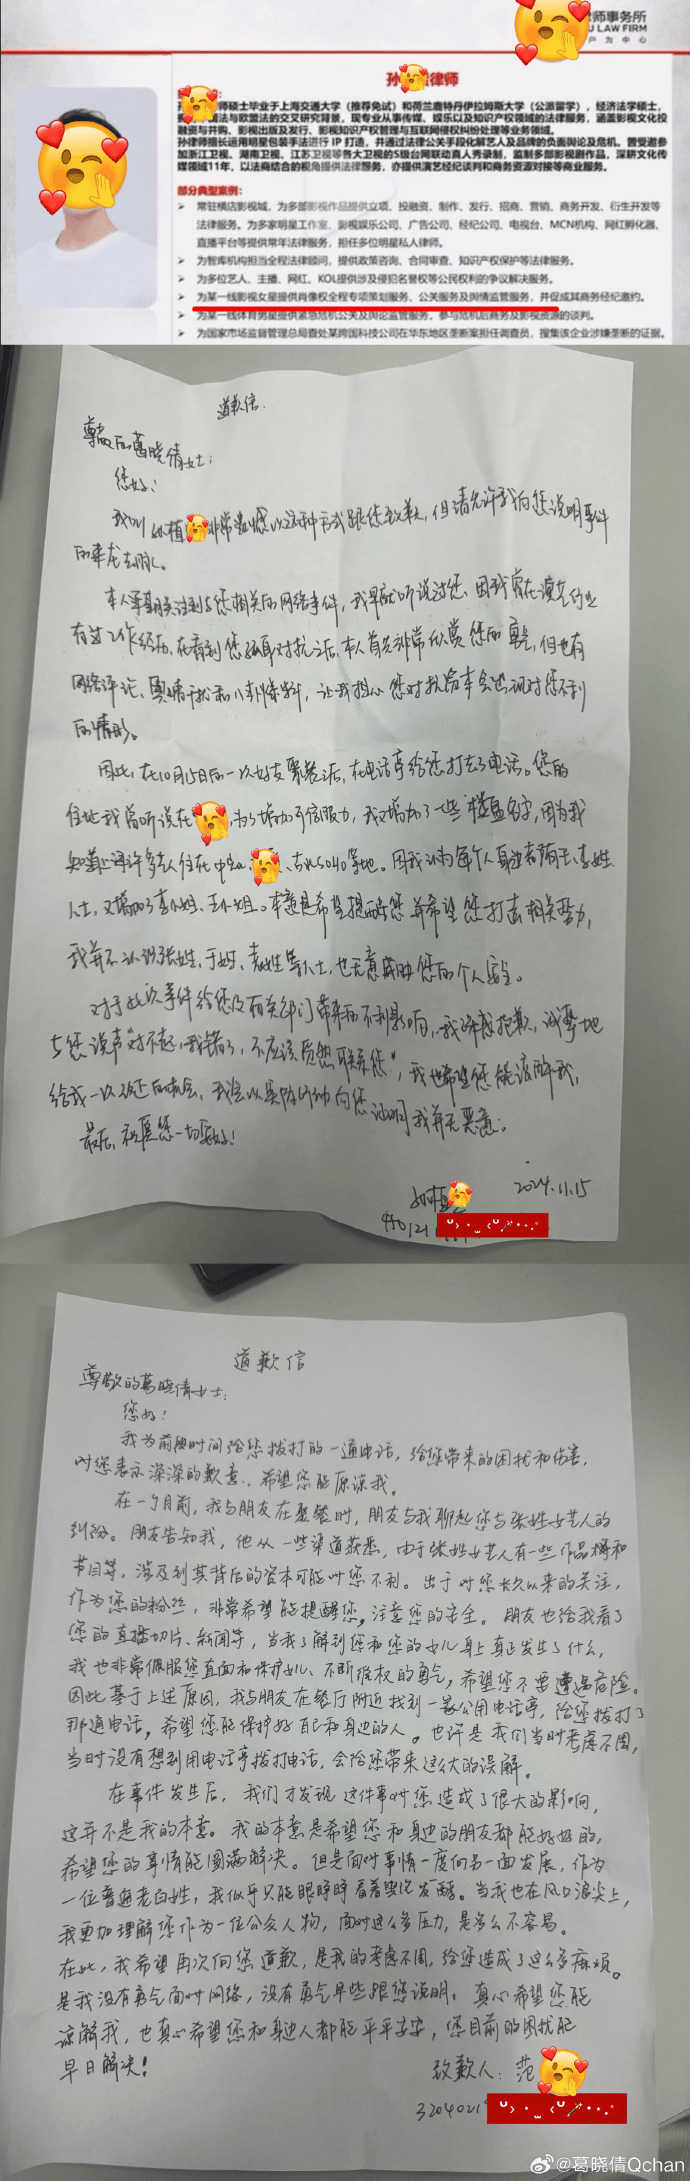 律师事务所
U LAW FIRM
户 为 中 心
孙 律师
孙 师硕士毕业于上海交通大学（推荐免试）和荷兰鹿特丹伊拉姆斯大学（公派留学），经济法学硕士，
法与欧盟法的交叉研究背景，现专业从事传媒、娱乐以及知识产权领域的法律服务，涵盖影视文化投
融资与并购、影视出版及发行、影视知识产权管理与互联网侵权纠纷处理等业务领域。
孙律师擅长运用明星包装手法进行 IP 打造，并通过法律公关手段化解艺人及品牌的负面舆论及危机。曾受邀参
加浙江卫视、湖南卫视、江苏卫视等各大卫视的S级台网联动真人秀录制，监制多部影视剧作品，深耕文化传
媒领域11年，以法商结合的视角提供法律服务，亦提供演艺经纪谈判和商务资源对接等商业服务。
部分典型案例：
常驻横店影视城，为多部影视作品提供立项、投融资、制作、发行、招商、营销、商务开发、衍生开发等
法律服务。为多家明星工作室、影视娱乐公司、广告公司、经纪公司、电视台、MCN机构、网红孵化器、
直播平台等提供常年法律服务，担任多位明星私人律师。
为智库机构担当全程法律顾问，提供政策咨询、合同审查、知识产权保护等法律服务。
为多位艺人、主播、网红、KOL提供涉及侵犯名誉权等公民权利的争议解决服务。
为某一线影视女星提供肖像权全程专项策划服务、公关服务及舆情监管服务，并促成其商务经纪邀约。
为某一线体育男星提供紧急危机公关及舆论监管服务，参与危机后商务及影视资源的谈判。
为国家市场监督管理总局查处某跨国科技公司在华东地区垄断案担任调查员，搜集该企业涉嫌垄断的证据。
道歉信
尊敬的葛晓倩女士：
您好！
我叫孙植 非常 以这种方式跟您致歉，但请允许我向您说明事件
的来龙去脉。
本人早期关注到与您相关的网络事件，我早就听说过您，因我曾在演艺行业
有过工作经历，在看到您孤身对抗之后，本人首先非常欣赏您的勇气，但也有
网络评论、舆情干扰和八卦爆料，让我担心您对抗后车会出现对您不利
的情形。
因此，在10月15日的一次好友聚餐之后，在电话亭给您打去了电话。您的
住址我曾听说在 ，为了增加可信服力，我又增加了一些"楼盘名字，因为我
知道 许多 人住在中 、 SOHO等地。因我认为每个人身边都有王、李姓
人士，又增加了李小姐、王小姐。本意是希望提醒您并希望您打击相关势力，
我并不认识张姓、于姓、袁姓等人士，也无意威胁您的个人安全。
对于此次事件给您及有关部门带来的不利影响，我深感抱歉，诚挚地
与您说声"对不起，我错了，不应该贸然联系您"，我也希望您能谅解我，
给我一次改过的机会，我会以实际行动向您证明我并无恶意。
最后，祝愿您一切安好！
孙植
2024.11.15
450121
道歉信
尊敬的葛晓倩女士：
您好！
我为前段时间给您拨打的一通电话，给您带来的困扰和伤害，
对您表示深深的歉意，希望您能原谅我。
在一个月前，我与朋友在聚餐时，朋友与我聊起您与张姓女艺人的
纠纷。朋友告知我，他从一些渠道获悉，由于张姓女艺人有一些作品播和
节目等，涉及到其背后的资本可能对您不利。出于对您长久以来的关注，
作为您的粉丝，非常希望能提醒您，注意您的安全。朋友也给我看了
您的直播切片、新闻等，当我了解到您和您的女儿身上真正发生了什么，
我也非常佩服您直面和保护女儿、不断维权的勇气，希望您不要遭遇危险。
因此基于上述原因，我与朋友在餐厅附近找到一家公用电话亭，给您拨打了
那通电话，希望您能保护好自己和身边的人。也许是我们当时考虑不周，
当时没有想到用电话亭拨打电话，会给您带来这么大的误解。
在事件发生后，我们才发现这件事对您造成了很大的影响，
这并不是我的本意。我的本意是希望您和身边的朋友都能好好的，
希望您的事情能圆满解决。但是面对事情一度向另一面发展，作为
一位普通老百姓，我似乎只能眼睁睁看着舆论发酵。当我也在风口浪尖上，
我更加理解您作为一位公众人物，面对这么多压力，是多么不容易。
在此，我希望再次向您道歉，是我的考虑不周，给您造成了这么多麻烦。
是我没有勇气面对网络，没有勇气早些跟您说明。真心希望您能
谅解我，也真心希望您和身边人都能平平安安，您目前的困扰能
早日解决！
致歉人：范
3204021
@葛晓倩Qchan